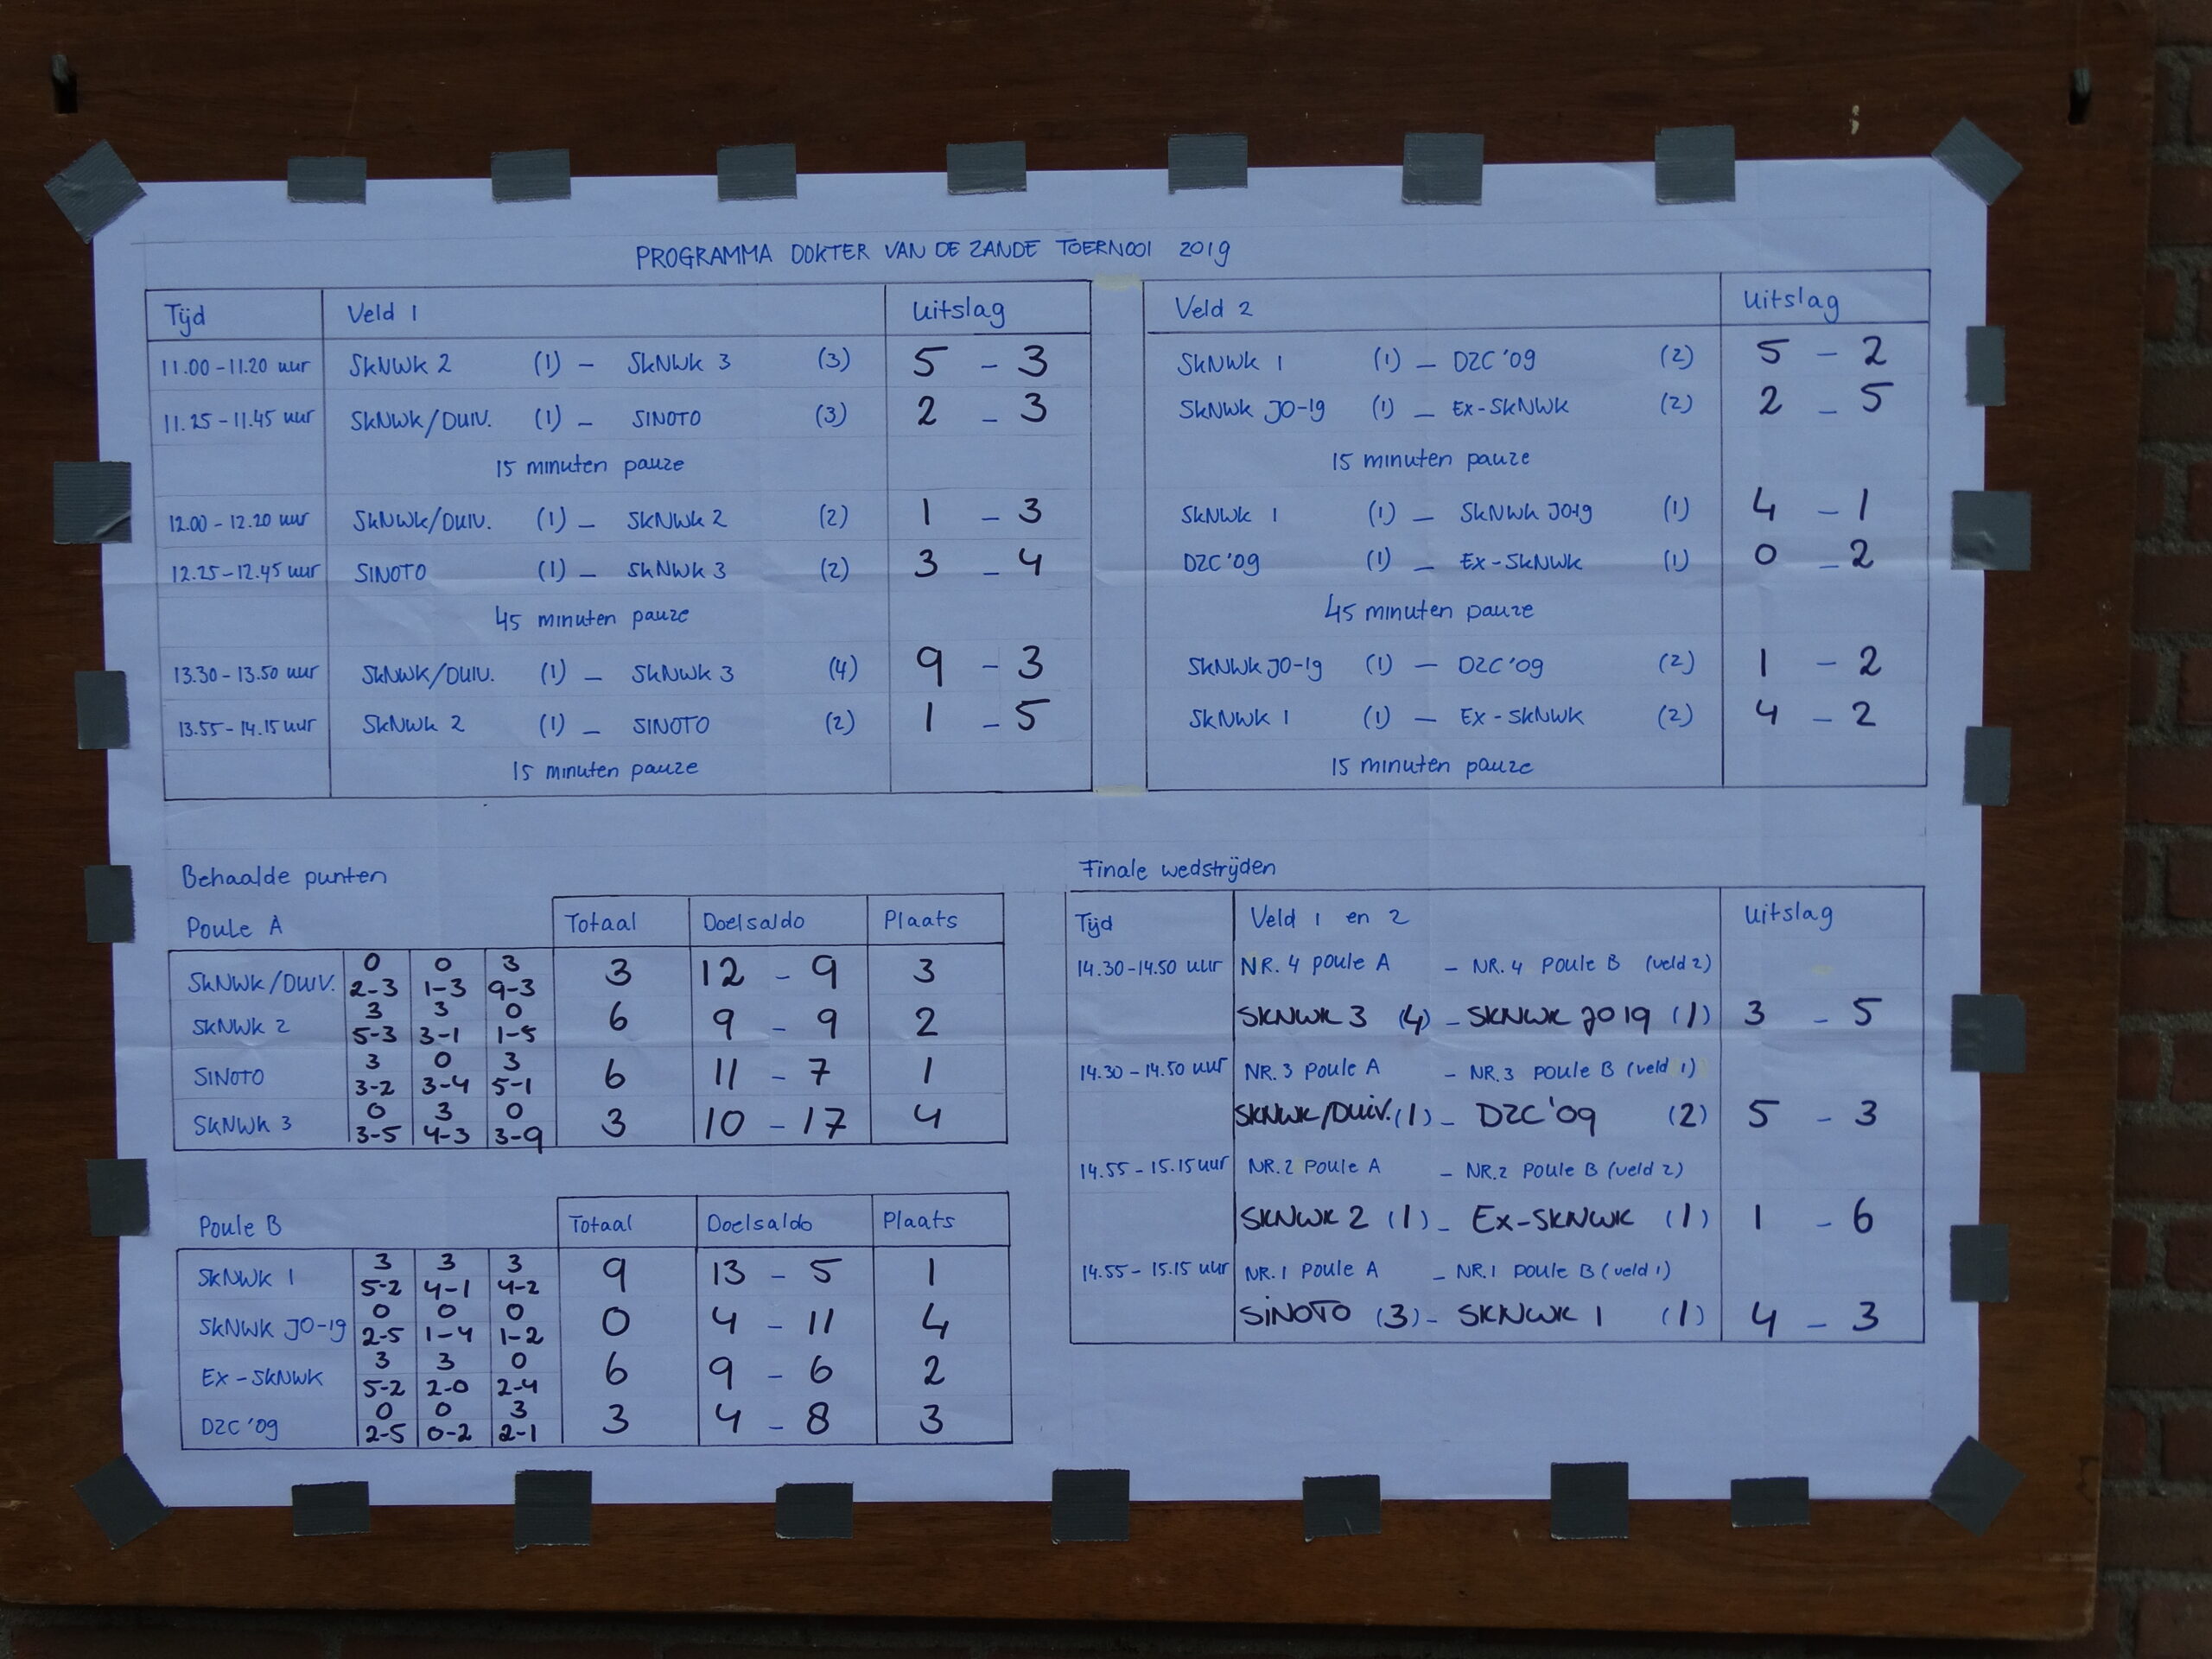 PROGRAMMA DOKTER VAN DE ZANDE TOERNOOI 2019
Tijd Veld 1 Uitslag Veld 2 Uitslag
11.00-11.20 uur SKNWK 2 (1) - SKNWK 3 (3) 5 - 3 SKNWK 1 (1) - DZC'09 (2) 5 - 2
11.25-11.45 uur SKNWK/DUIV. (1) - SINOTO (3) 2 - 3 SKNWK JO-19 (1) - Ex-SKNWK (2) 2 - 5
15 minuten pauze 15 minuten pauze
12.00-12.20 uur SKNWK/DUIV. (1) - SKNWK 2 (2) 1 - 3 SKNWK 1 (1) - SKNWK JO19 (1) 4 - 1
12.25-12.45 uur SINOTO (1) - SKNWK 3 (2) 3 - 4 DZC'09 (1) - Ex-SKNWK (1) 0 - 2
45 minuten pauze 45 minuten pauze
13.30-13.50 uur SKNWK/DUIV. (1) - SKNWK 3 (4) 9 - 3 SKNWK JO-19 (1) - DZC'09 (2) 1 - 2
13.55-14.15 uur SKNWK 2 (1) - SINOTO (2) 1 - 5 SKNWK 1 (1) - Ex-SKNWK (2) 4 - 2
15 minuten pauze 15 minuten pauze
Behaalde punten
Poule A Totaal Doelsaldo Plaats
0 0 3
SKNWK/DUIV. 2-3 1-3 9-3 3 12 - 9 3
3 3 0
SKNWK 2 5-3 3-1 1-5 6 9 - 9 2
3 0 3
SINOTO 3-2 3-4 5-1 6 11 - 7 1
0 3 0
SKNWK 3 3-5 4-3 3-9 3 10 - 17 4
Poule B Totaal Doelsaldo Plaats
3 3 3
SKNWK 1 5-2 4-1 4-2 9 13 - 5 1
0 0 0
SKNWK JO-19 2-5 1-4 1-2 0 4 - 11 4
3 3 0
Ex-SKNWK 5-2 2-0 2-4 6 9 - 6 2
0 0 3
DZC'09 2-5 0-2 2-1 3 4 - 8 3
Finale wedstrijden
Tijd Veld 1 en 2 Uitslag
14.30-14.50 uur NR. 4 POULE A - NR. 4 POULE B (veld 2)
SKNWK 3 (4) - SKNWK JO19 (1) 3 - 5
14.30-14.50 uur NR. 3 POULE A - NR. 3 POULE B (veld 1)
SKNWK/DUIV. (1) - DZC'09 (2) 5 - 3
14.55-15.15 uur NR. 2 POULE A - NR. 2 POULE B (veld 2)
SKNWK 2 (1) - Ex-SKNWK (1) 1 - 6
14.55-15.15 uur NR. 1 POULE A - NR. 1 POULE B (veld 1)
SINOTO (3) - SKNWK 1 (1) 4 - 3